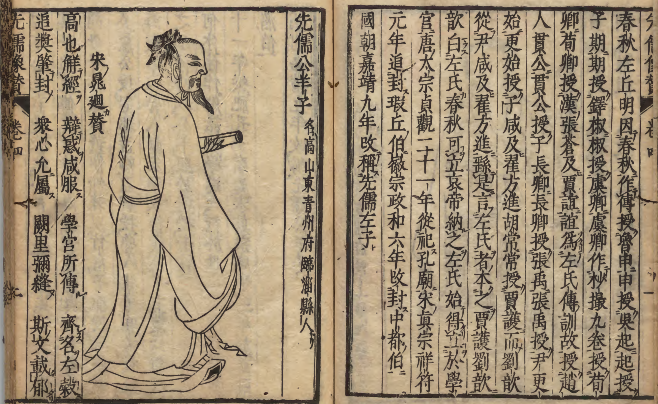 春秋左丘明因春秋作傳授魯申申授吳起起授
子期期授鐸椒椒授虞卿虞卿作抄撮九卷授荀
卿荀卿授漢張蒼及賈誼誼爲左氏傳訓故授趙
人貫公貫公授子長卿長卿授張禹張禹授尹更
始更始授子咸及翟方進胡常常授賈護而劉歆
從尹咸及翟方進繇是言左氏者本之賈護劉歆
歆白左氏春秋可立哀帝納之左氏始得立於學
官唐太宗貞觀二十一年從祀孔廟宋真宗祥符
元年追封瑕丘伯徽宗政和六年改封中都伯
國朝嘉靖九年改稱先儒左子
先儒公羊子 名高山東青州府臨淄縣人
宋晁迥贊
高也解經 辯裁咸服 學官所傳 齊名左穀
追獎肇封 衆心允屬 闕里彌縫 斯文載郁
先儒像贊 卷四